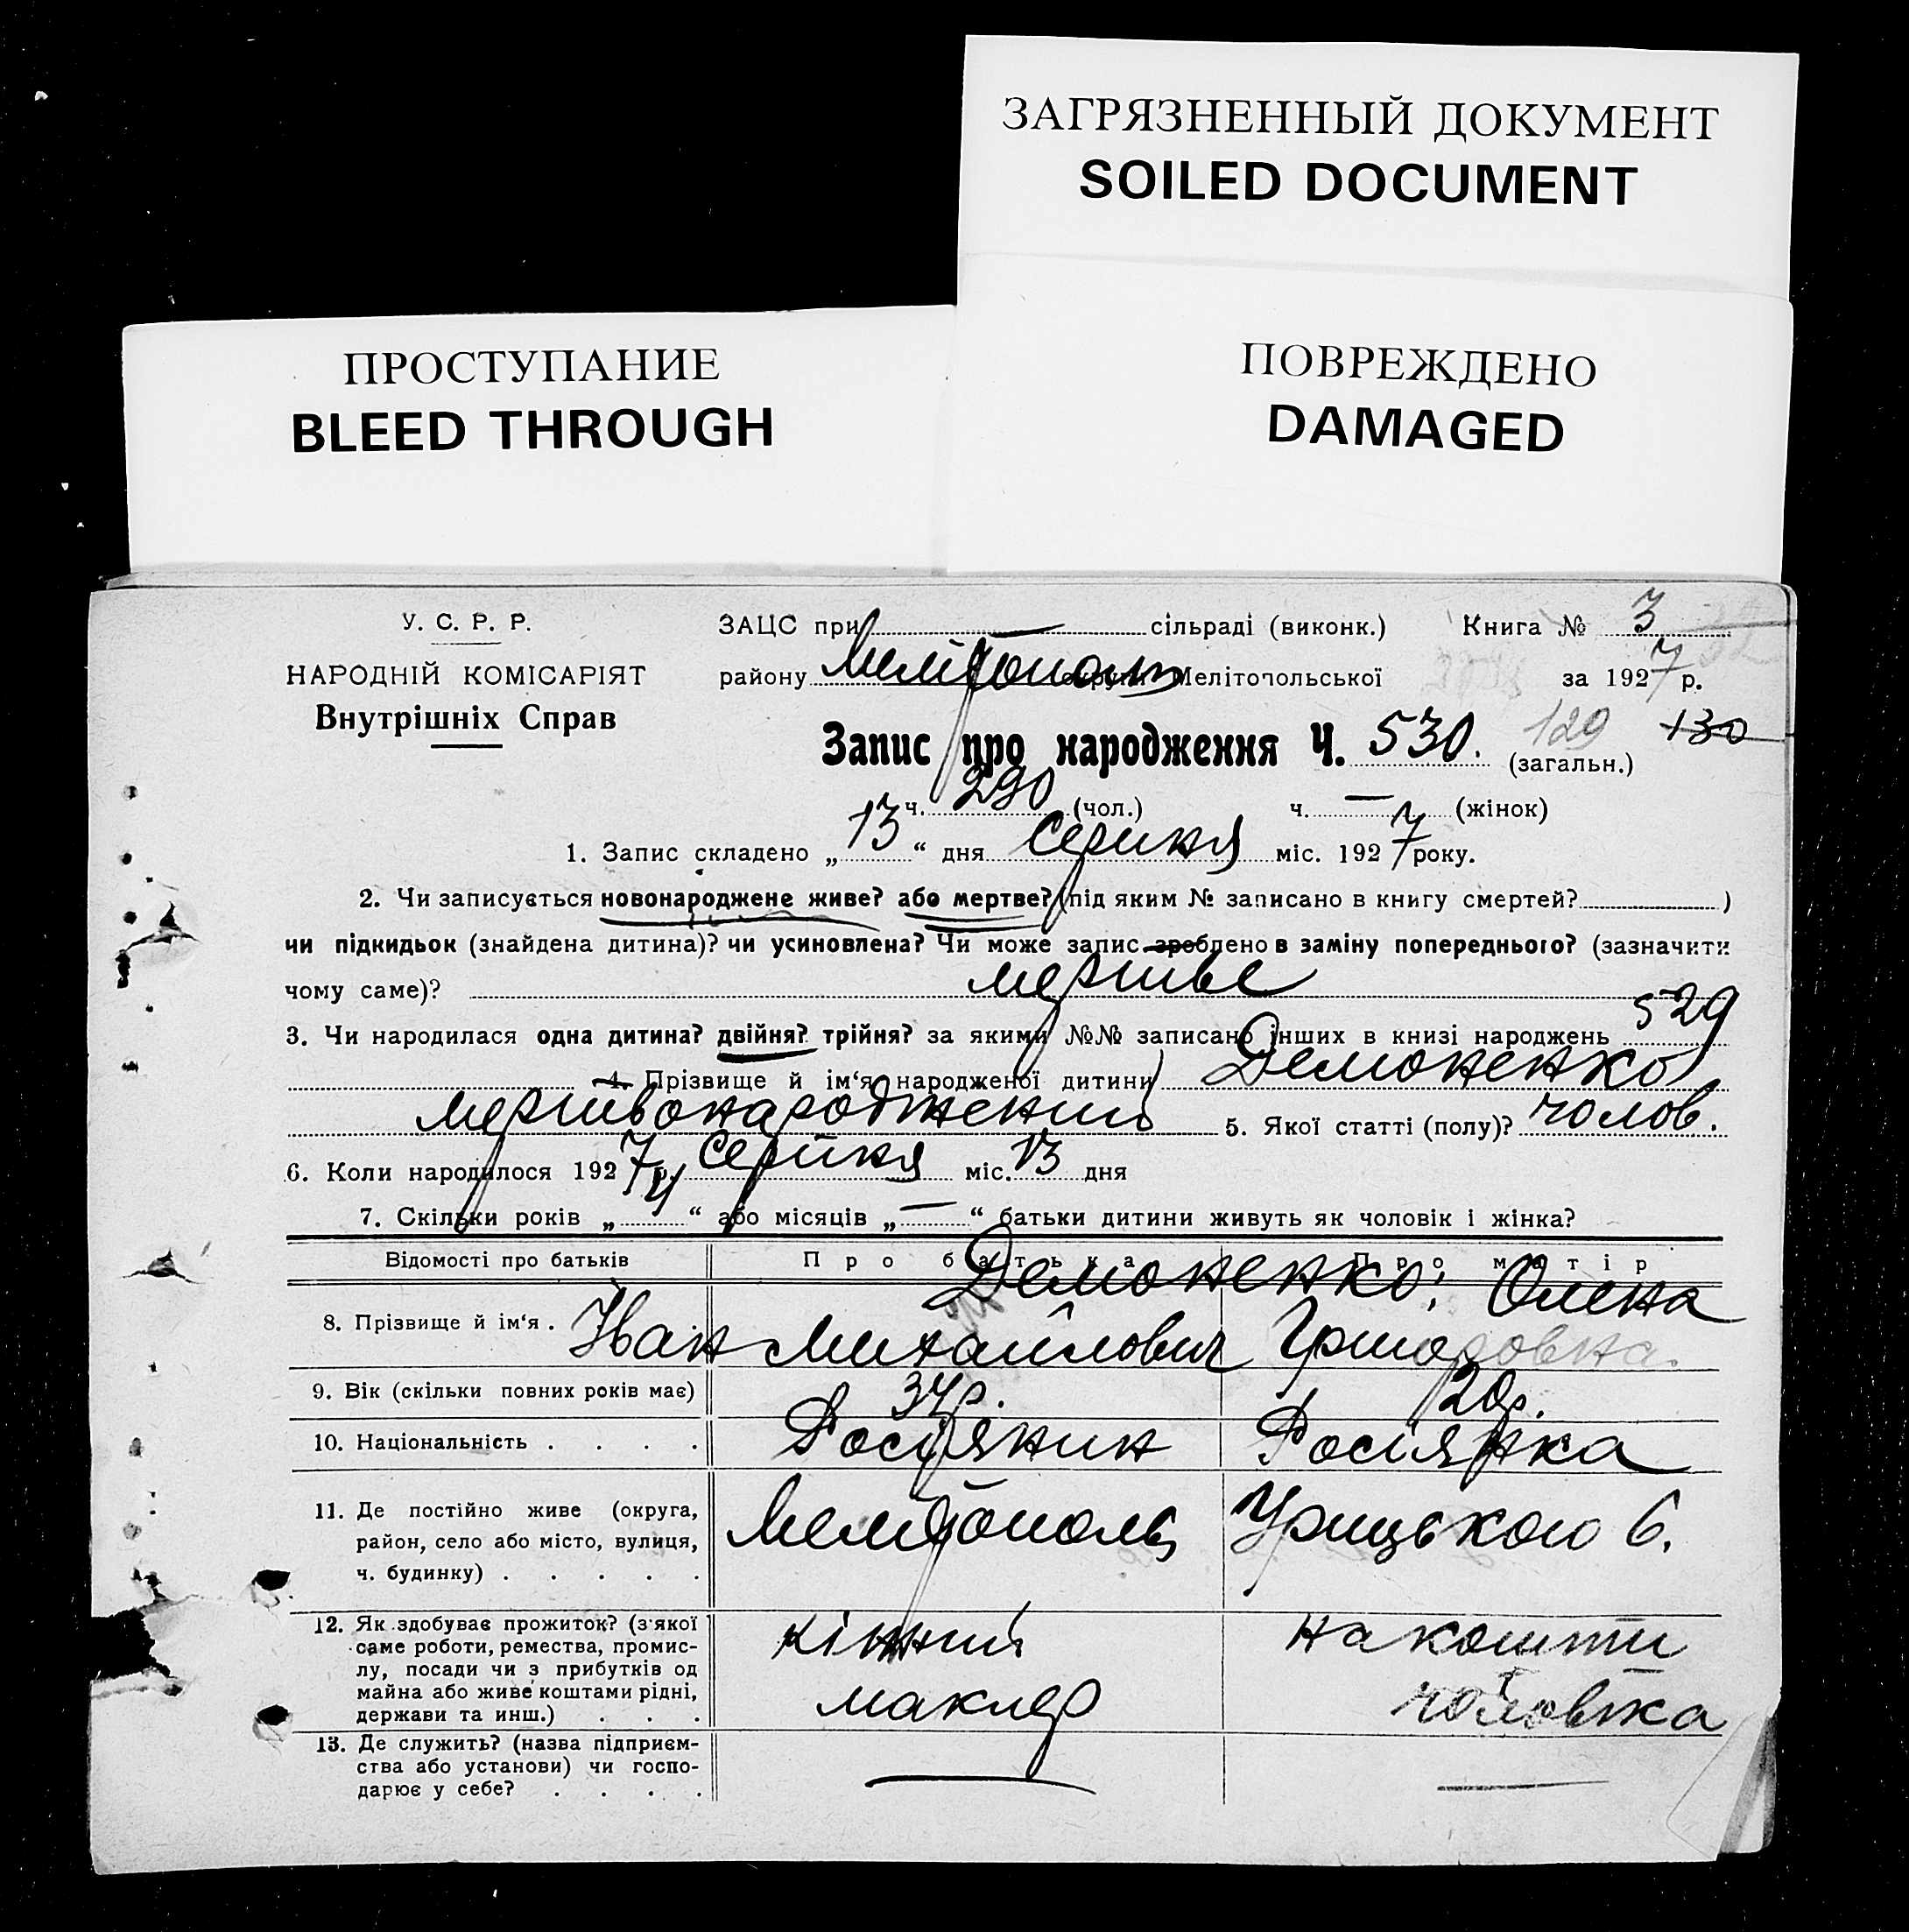 ЗАГРЯЗНЕННЫЙ ДОКУМЕНТ
SOILED DOCUMENT
ПРОСТУПАНИЕ
BLEED THROUGH
ПОВРЕЖДЕНО
DAMAGED
У. С. Р. Р.
НАРОДНІЙ КОМІСАРІЯТ
Внутрішніх Справ
ЗАЦС при сільраді (виконк.) Книга № 3
району Мелітополь округи Мелітопольської за 1927 р.
Запис про народження Ч. 530. 129 130
(загальн.)
ч. 290 (чол.) ч. — (жінок)
1. Запис складено „13“ дня Серпня міс. 1927 року.
2. Чи записується новонароджене живе? або мертве? (під яким № записано в книгу смертей? )
чи підкидьок (знайдена дитина)? чи усиновлена? Чи може запис зроблено в заміну попереднього? (зазначити
чому саме)? мертве
3. Чи народилася одна дитина? двійня? трійня? за якими №№ записано інших в книзі народжень 529
4. Прізвище й ім‘я народженої дитини Демоненко
мертвонароджений 5. Якої статті (полу)? чолов.
6. Коли народилося 1927 р. Серпня міс. 13 дня
7. Скільки років „4“ або місяців „—“ батьки дитини живуть як чоловік і жінка?
Відомості про батьків Про батька Про матір
8. Прізвище й ім‘я . Демоненко; Олена
Іван Михайлович Григоровна.
9. Вік (скільки повних років має) 34р. 20р.
10. Національність . . . . Росіянин Росіянка
11. Де постійно живе (округа,
район, село або місто, вулиця,
ч. будинку) . . . . . Мелітополь Урицького 6.
12. Як здобуває прожиток? (з якої
саме роботи, ремества, промис-
лу, посади чи з прибутків од
майна або живе коштами рідні,
держави та инш.) . . . кінний маклер на кошти чоловіка
13. Де служить? (назва підприєм-
ства або установи) чи госпо-
дарює у себе? . . . . — —